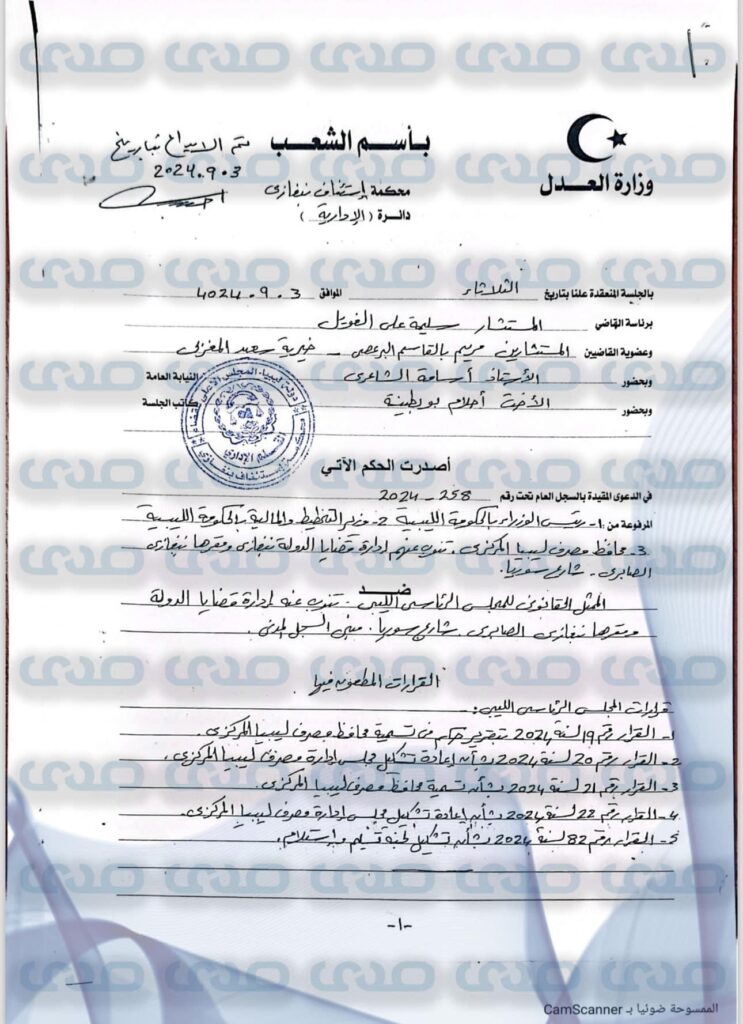 تم الايداع بتاريخ
2024.9.3
بأسم الشعب
وزارة العدل
محكمة إستئناف بنغازي
دائرة (الإدارية)
بالجلسة المنعقدة علنا بتاريخ الثلاثاء الموافق 2024.9.3
برئاسة القاضي المستشار سليمة علي الغويل
وعضوية القاضيين المستشارين مريم بالقاسم البرعصي - خيرية سعيد المغربي
وبحضور الأستاذ أسامة الشاعري النيابة العامة
وبحضور الأخت أحلام بوبطينة كاتب الجلسة
أصدرت الحكم الآتي
في الدعوى المقيدة بالسجل العام تحت رقم 258 - 2024
المرفوعة من 1- رئيس الوزراء بالحكومة الليبية 2- وزير التخطيط والمالية بالحكومة الليبية
3- محافظ مصرف ليبيا المركزي. تنوب عنهم إدارة قضايا الدولة بنغازي ومقرها بنغازي
الصابري - شارع سوريا.
ضد
الممثل القانوني للمجلس الرئاسي الليبي. تنوب عنه إدارة قضايا الدولة
ومقرها بنغازي الصابري. شارع سوريا. مبنى السجل المدني.
القرارات المطعون فيها
قرارات المجلس الرئاسي الليبي:
1- القرار رقم 19 لسنة 2024 بتقرير حكم في تسمية محافظ مصرف ليبيا المركزي.
2- القرار رقم 20 لسنة 2024 بشأن إعادة تشكيل مجلس إدارة مصرف ليبيا المركزي.
3- القرار رقم 21 لسنة 2024 بشأن تسمية محافظ مصرف ليبيا المركزي.
4- القرار رقم 22 لسنة 2024 بشأن إعادة تشكيل مجلس إدارة مصرف ليبيا المركزي.
5- القرار رقم 82 لسنة 2024 بشأن تشكيل لجنة تسليم وإستلام.
-1-
الممسوحة ضوئيا بـ CamScanner
صدى